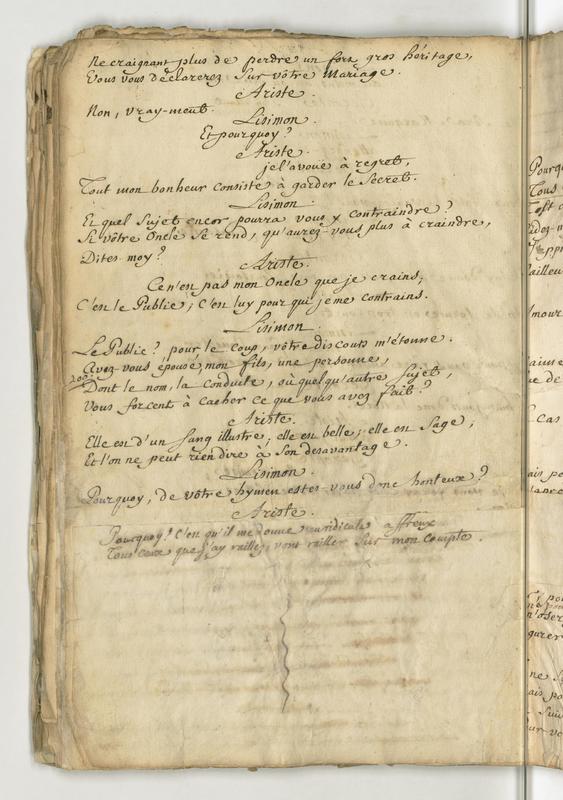 Ne craignant plus de perdre un fort gros héritage,
Vous vous déclarerez sur vôtre Mariage.
Ariste.
Non, vray-ment.
Lisimon.
Et pourquoy?
Ariste.
je l'avoue à regret,
Tout mon bonheur consiste à garder le Secret.
Lisimon.
Et quel Sujet encor pourra vous y contraindre?
Si vôtre Oncle se rend, qu'aurez-vous plus à craindre,
Dites moy?
Ariste.
Ce n'en pas mon Oncle que je crains,
C'en le Public; C'en luy pour qui je me contrains.
Lisimon.
Le Public? pour le coup, vôtre discours m'étonne.
Avez-vous épousé, mon fils, une personne,
Dont le nom, la conduite, ou quelqu'autre Sujet,
Vous forcent à cacher ce que vous avez fait?
Ariste.
Elle est d'un sang illustre; elle en belle; elle en Sage;
Et l'on ne peut rien dire à Son desavantage.
Lisimon.
Pourquoy, de vôtre hymen estes-vous donc honteux?
Ariste.
Pourquoy? C'en qu'il me donne un ridicule affreux
Tous ceux que j'ay raillez, vont railler Sur mon Compte.
Pourqu
Tous